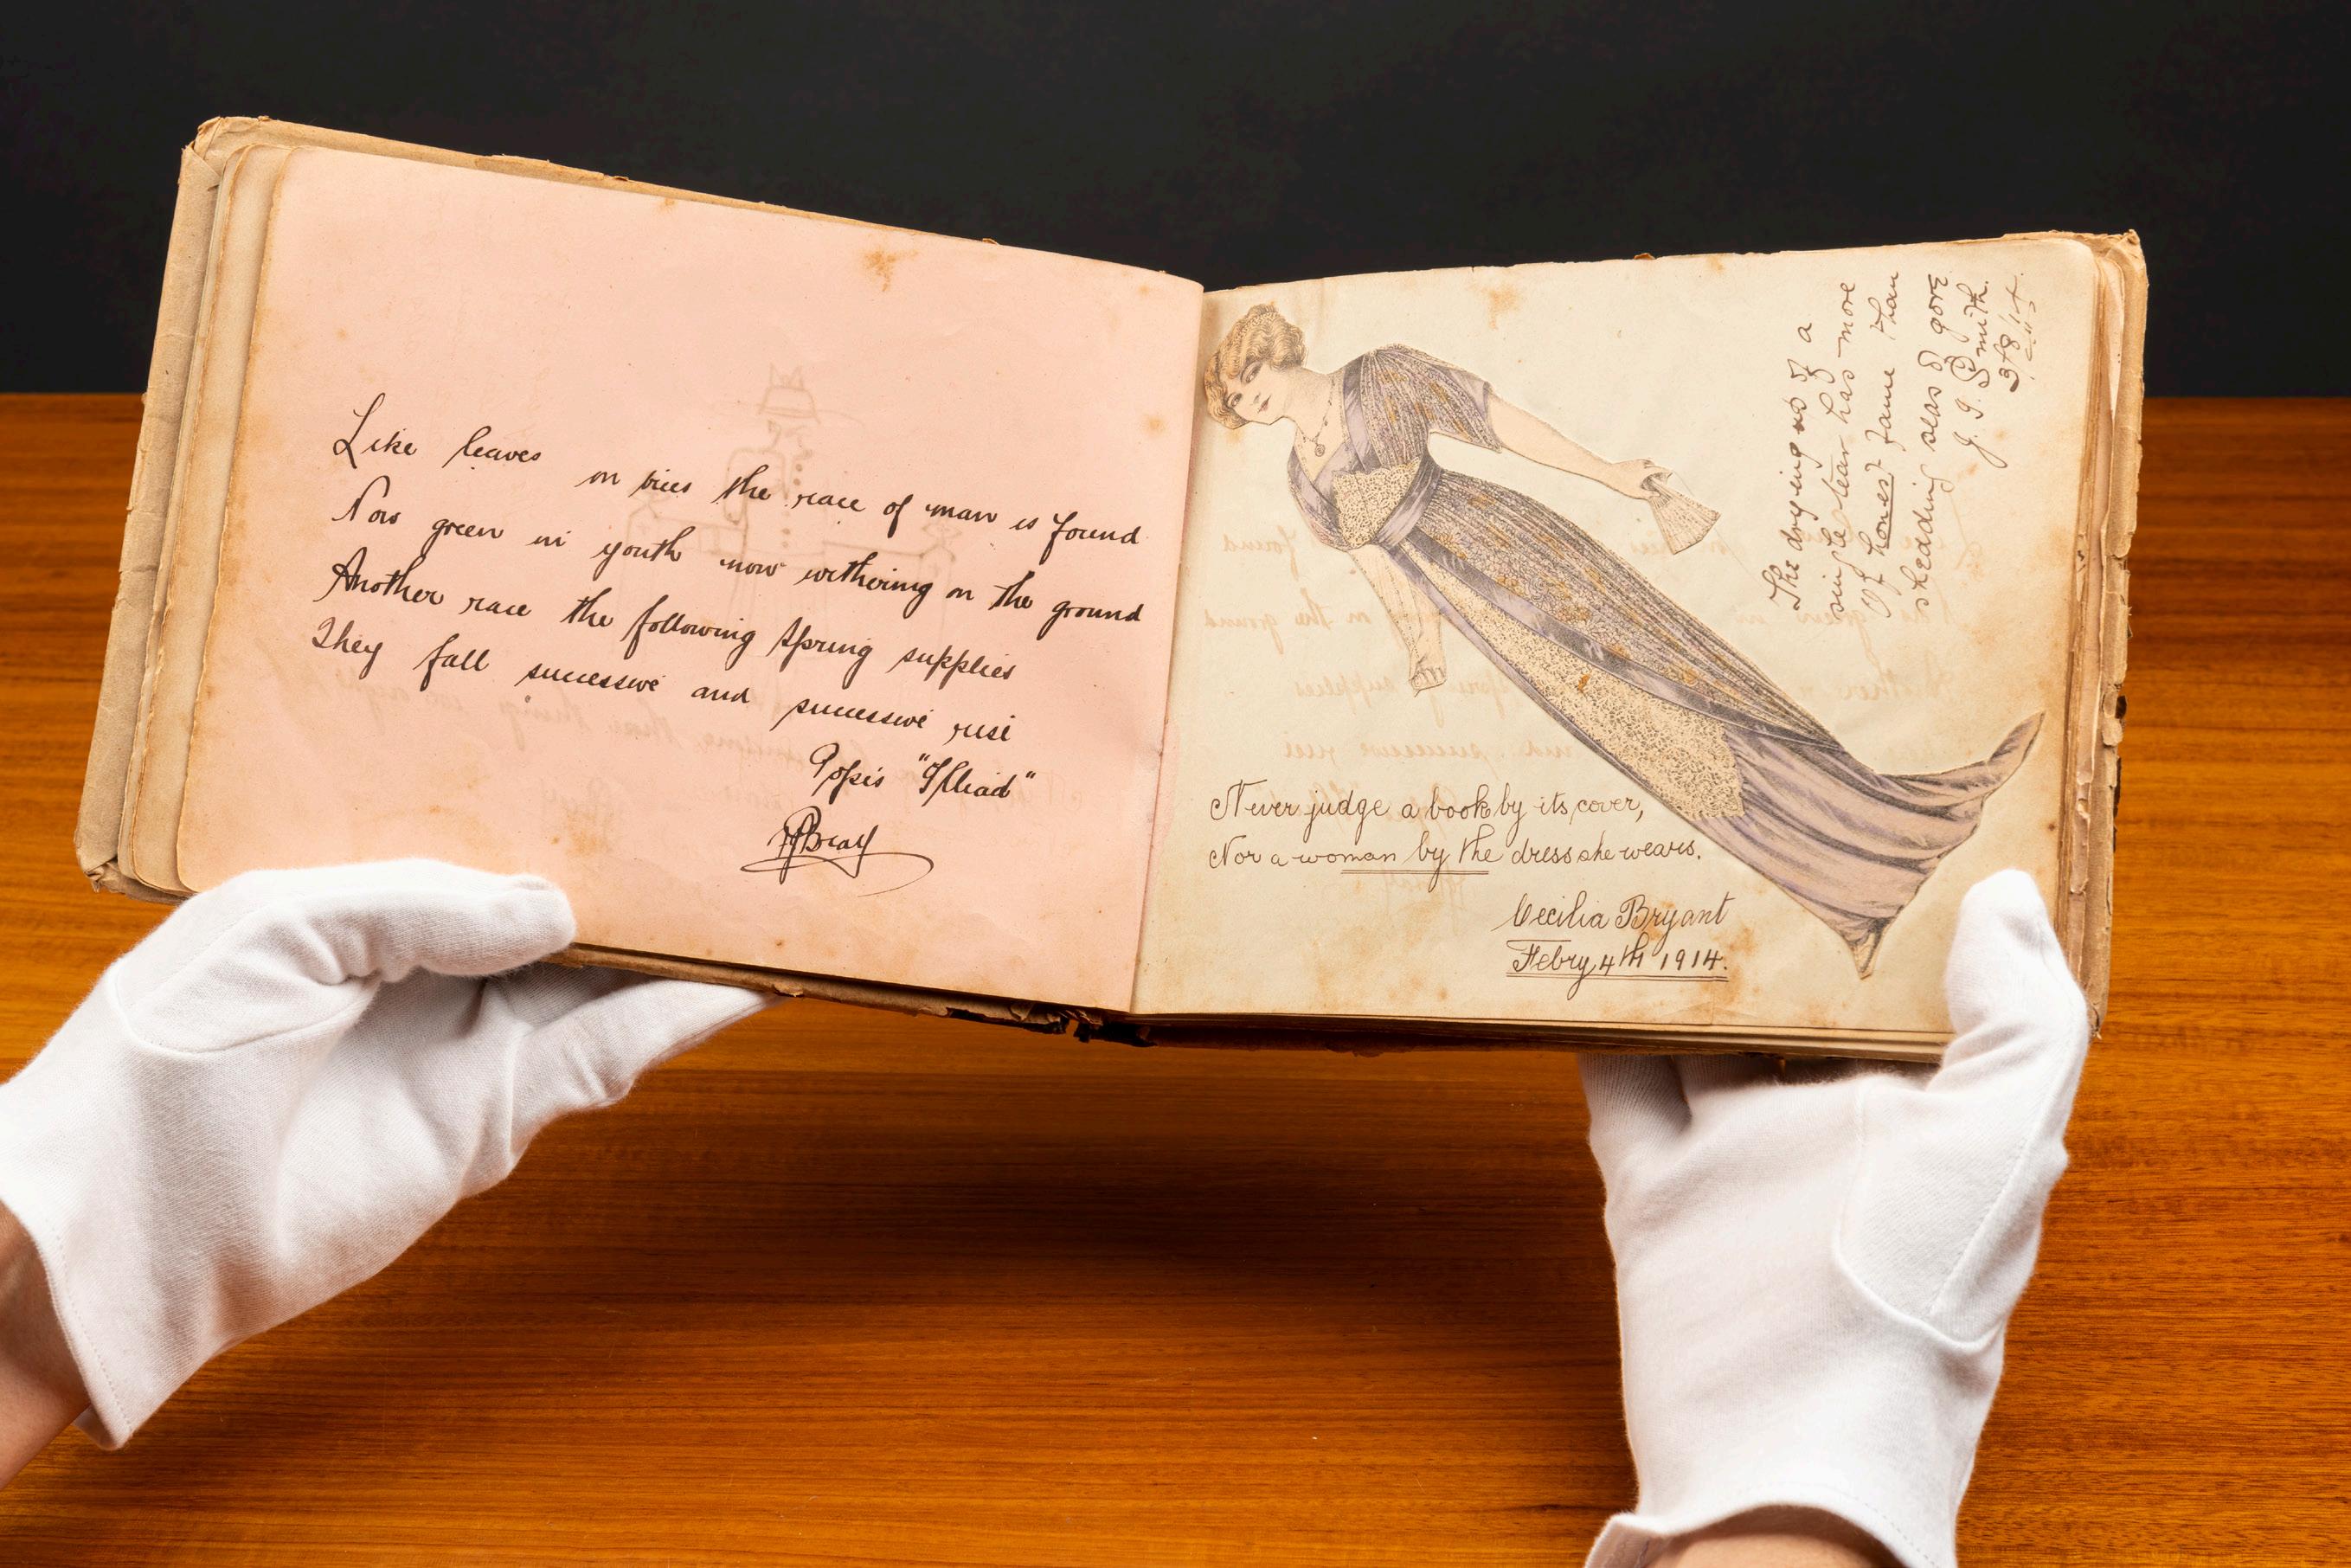 Like leaves on trees the race of man is found
Now green in youth now withering on the ground
Another race the following spring supplies
They fall successive and successive rise
Pope's "Illiad"
Never judge a book by its cover,
Nor a woman by the dress she wears.
Cecilia Bryant
Febry 4th 1914.
The drying up of a
single tear has more
Of honest fame than
shedding seas of gore
J. J. Smith.